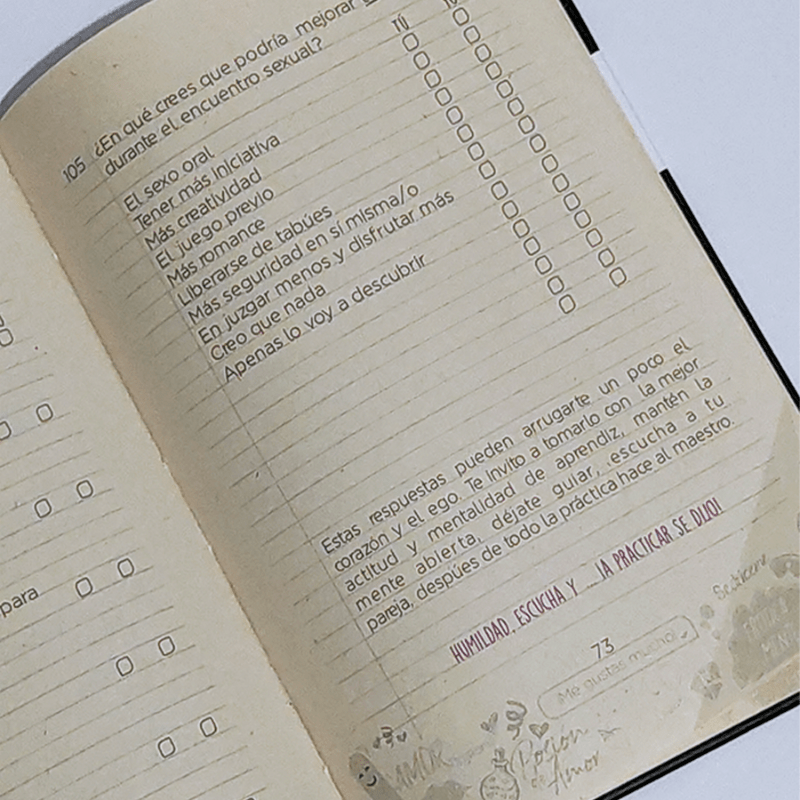 105 ¿En qué crees que podría mejorar
durante el encuentro sexual?
Tú
El sexo oral
Tener más iniciativa
Más creatividad
El juego previo
Más romance
Liberarse de tabúes
Más seguridad en sí misma/o
En juzgar menos y disfrutar más
Creo que nada
Apenas lo voy a descubrir
Estas respuestas pueden arrugarte un poco el
corazón y el ego. Te invito a tomarlo con la mejor
actitud y mentalidad de aprendiz, mantén la
mente abierta, déjate guiar, escucha a tu
pareja, despúes de todo la práctica hace al maestro.
HUMILDAD, ESCUCHA Y ...¡A PRACTICAR SE DIJO!
73
¡Me gustas mucho!
AMOR
Poción
de Amor
para